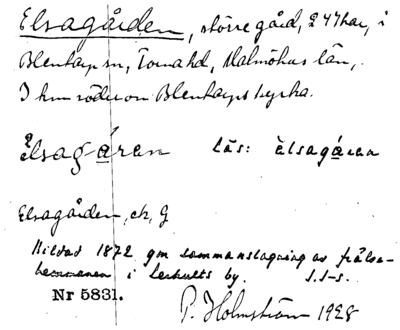 Elsagården, större gård, 247 har, i
Blentarp sn, Torna hd, Malmöhus län,
I km söder om Blentarps kyrka.
èlsagáren Läs: èlsagáren
Elsagården, ek, G
Bildad 1872 gm sammanslagning av frälse-
hemmanen i Lerhults by. S.S-s.
Nr 5831. P. Holmström 1928